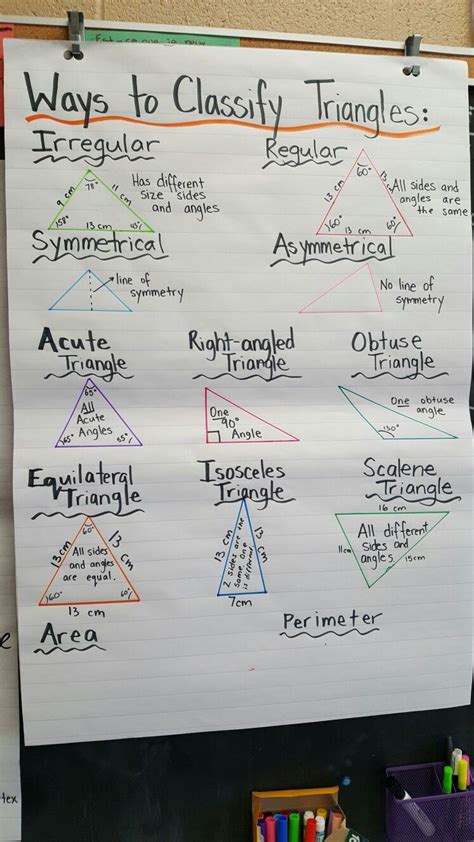 Ways to Classify Triangles:
Irregular
9 cm
78°
11 cm
58°
13 cm
Has different
size sides
and angles
Regular
60°
13 cm
60°
13 cm
60°
All sides and
angles are
the same
Symmetrical
line of
symmetry
Asymmetrical
No line of
symmetry
Acute
Triangle
65°
All
Acute
Angles
55°
Right-angled
Triangle
One
90°
Angle
Obtuse
Triangle
One obtuse
angle
130°
Equilateral
Triangle
60°
13 cm
13 cm
All sides
and angles
are equal.
60°
60°
13 cm
Isosceles
Triangle
13 cm
13 cm
2 sides are the
same. One
is different
7cm
Scalene
Triangle
16 cm
11cm
15cm
All different
sides and
angles.
Area
Perimeter